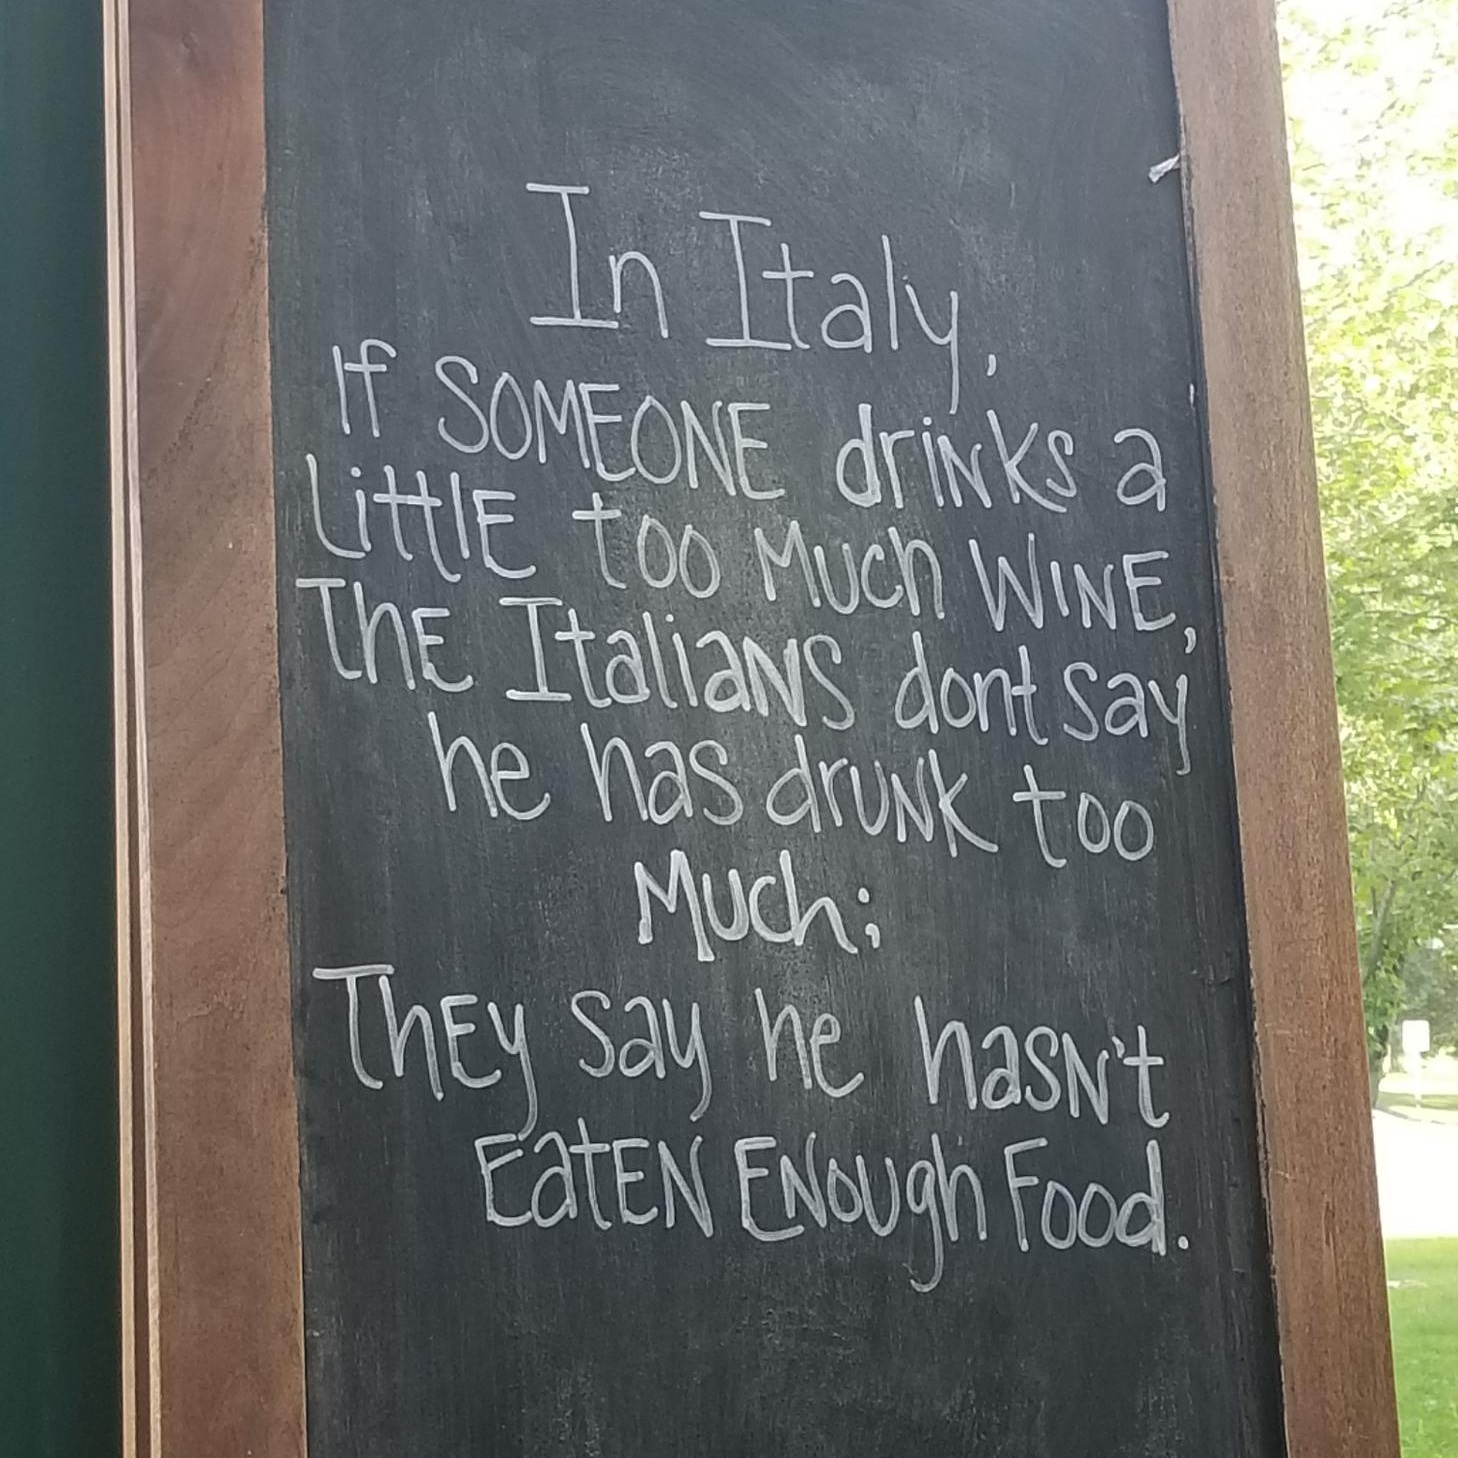 In Italy,
If SOMEONE drinks a
LittlE too Much WINE,
ThE ItaliaNS dont say
he has drunk too
Much;
ThEy say he hasN't
EatEN ENough Food.